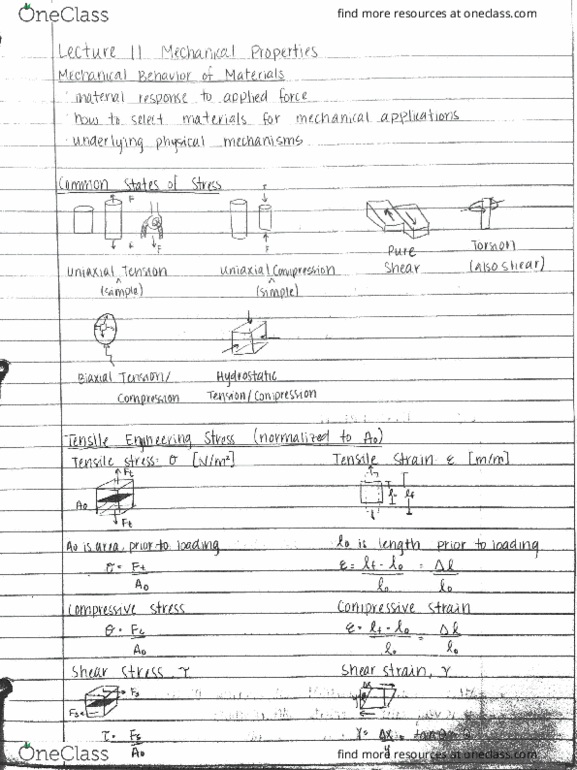 OneClass
find more resources at oneclass.com
Lecture 11 Mechanical Properties
Mechanical Behavior of Materials
· material response to applied force
· how to select materials for mechanical applications
· underlying physical mechanisms
Common States of Stress
F
F
F
F
Uniaxial Tension
^
(sample)
Uniaxial Compression
^
(simple)
Pure
Shear
Torsion
(also shear)
Biaxial Tension/
Compression
Hydrostatic
Tension/Compression
Tensile Engineering Stress (normalized to A₀)
Tensile stress σ [N/m²]
Tensile Strain ε [m/m]
Ft
A₀
Ft
A₀ is area, prior to loading
l₀ is length prior to loading
σ = Ft / A₀
ε = lf - l₀ / l₀ = Δl / l₀
Compressive stress
Compressive strain
σ = Fc / A₀
ε = lf - l₀ / l₀ = Δl / l₀
Shear stress, τ
Shear strain, γ
Fs
Fs
Δx
y
τ = Fs / A₀
γ = Δx / y = tan
OneClass
find more resources at oneclass.com